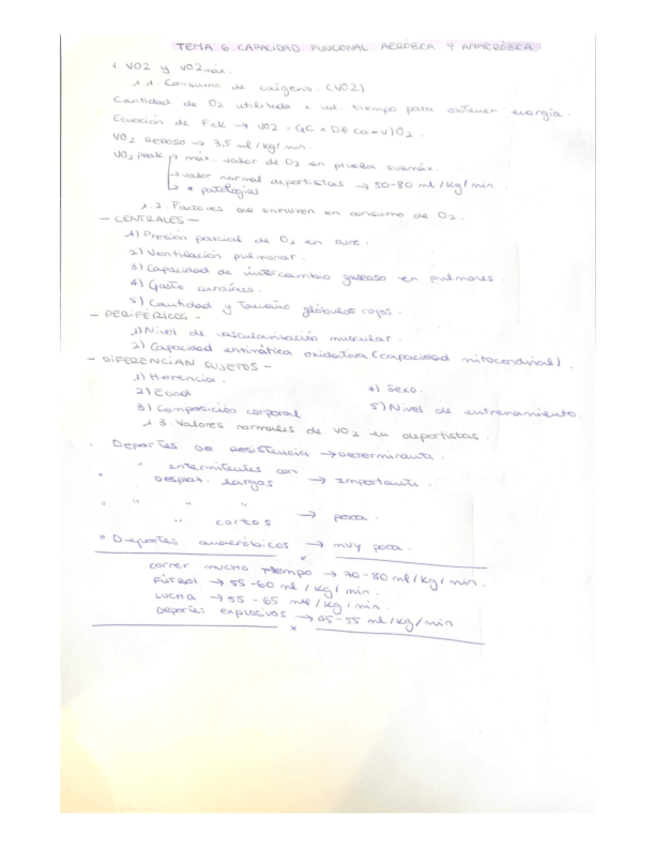 TEMA 6. CAPACIDAD FUNCIONAL AERÓBICA Y ANAERÓBICA
1. VO2 y VO2máx.
1.1. Consumo de oxígeno. (VO2)
Cantidad de O2 utilizada x ud. tiempo para obtener energía.
Ecuación de Fick → VO2 = GC x Dif (a-v)O2.
VO2 REPOSO → 3,5 ml/kg/min.
VO2 peak → máx. valor de O2 en prueba submáx.
→ valor normal deportistas → 50-80 ml/kg/min
→ * patologías
1.2. Factores que influyen en consumo de O2.
- CENTRALES -
1) Presión parcial de O2 en aire.
2) Ventilación pulmonar.
3) Capacidad de intercambio gaseoso en pulmones.
4) Gasto cardíaco.
5) Cantidad y tamaño glóbulos rojos.
- PERIFÉRICOS -
1) Nivel de vascularización muscular.
2) Capacidad enzimática oxidativa (capacidad mitocondrial).
- DIFERENCIAN SUJETOS -
1) Herencia. 4) Sexo.
2) Edad 5) Nivel de entrenamiento.
3) Composición corporal
1.3. Valores normales de VO2 en deportistas.
· Deportes de resistencia → Determinante.
· " intermitentes con
desplaz. largos → Importante.
· " " " "
" cortos → poca.
· Deportes anaeróbicos → muy poca.
x
correr mucho tiempo → 70-80 ml/kg/min.
FÚTBOL → 55-60 ml/kg/min.
LUCHA → 55-65 ml/kg/min.
Deportes explosivos → 45-55 ml/kg/min
x